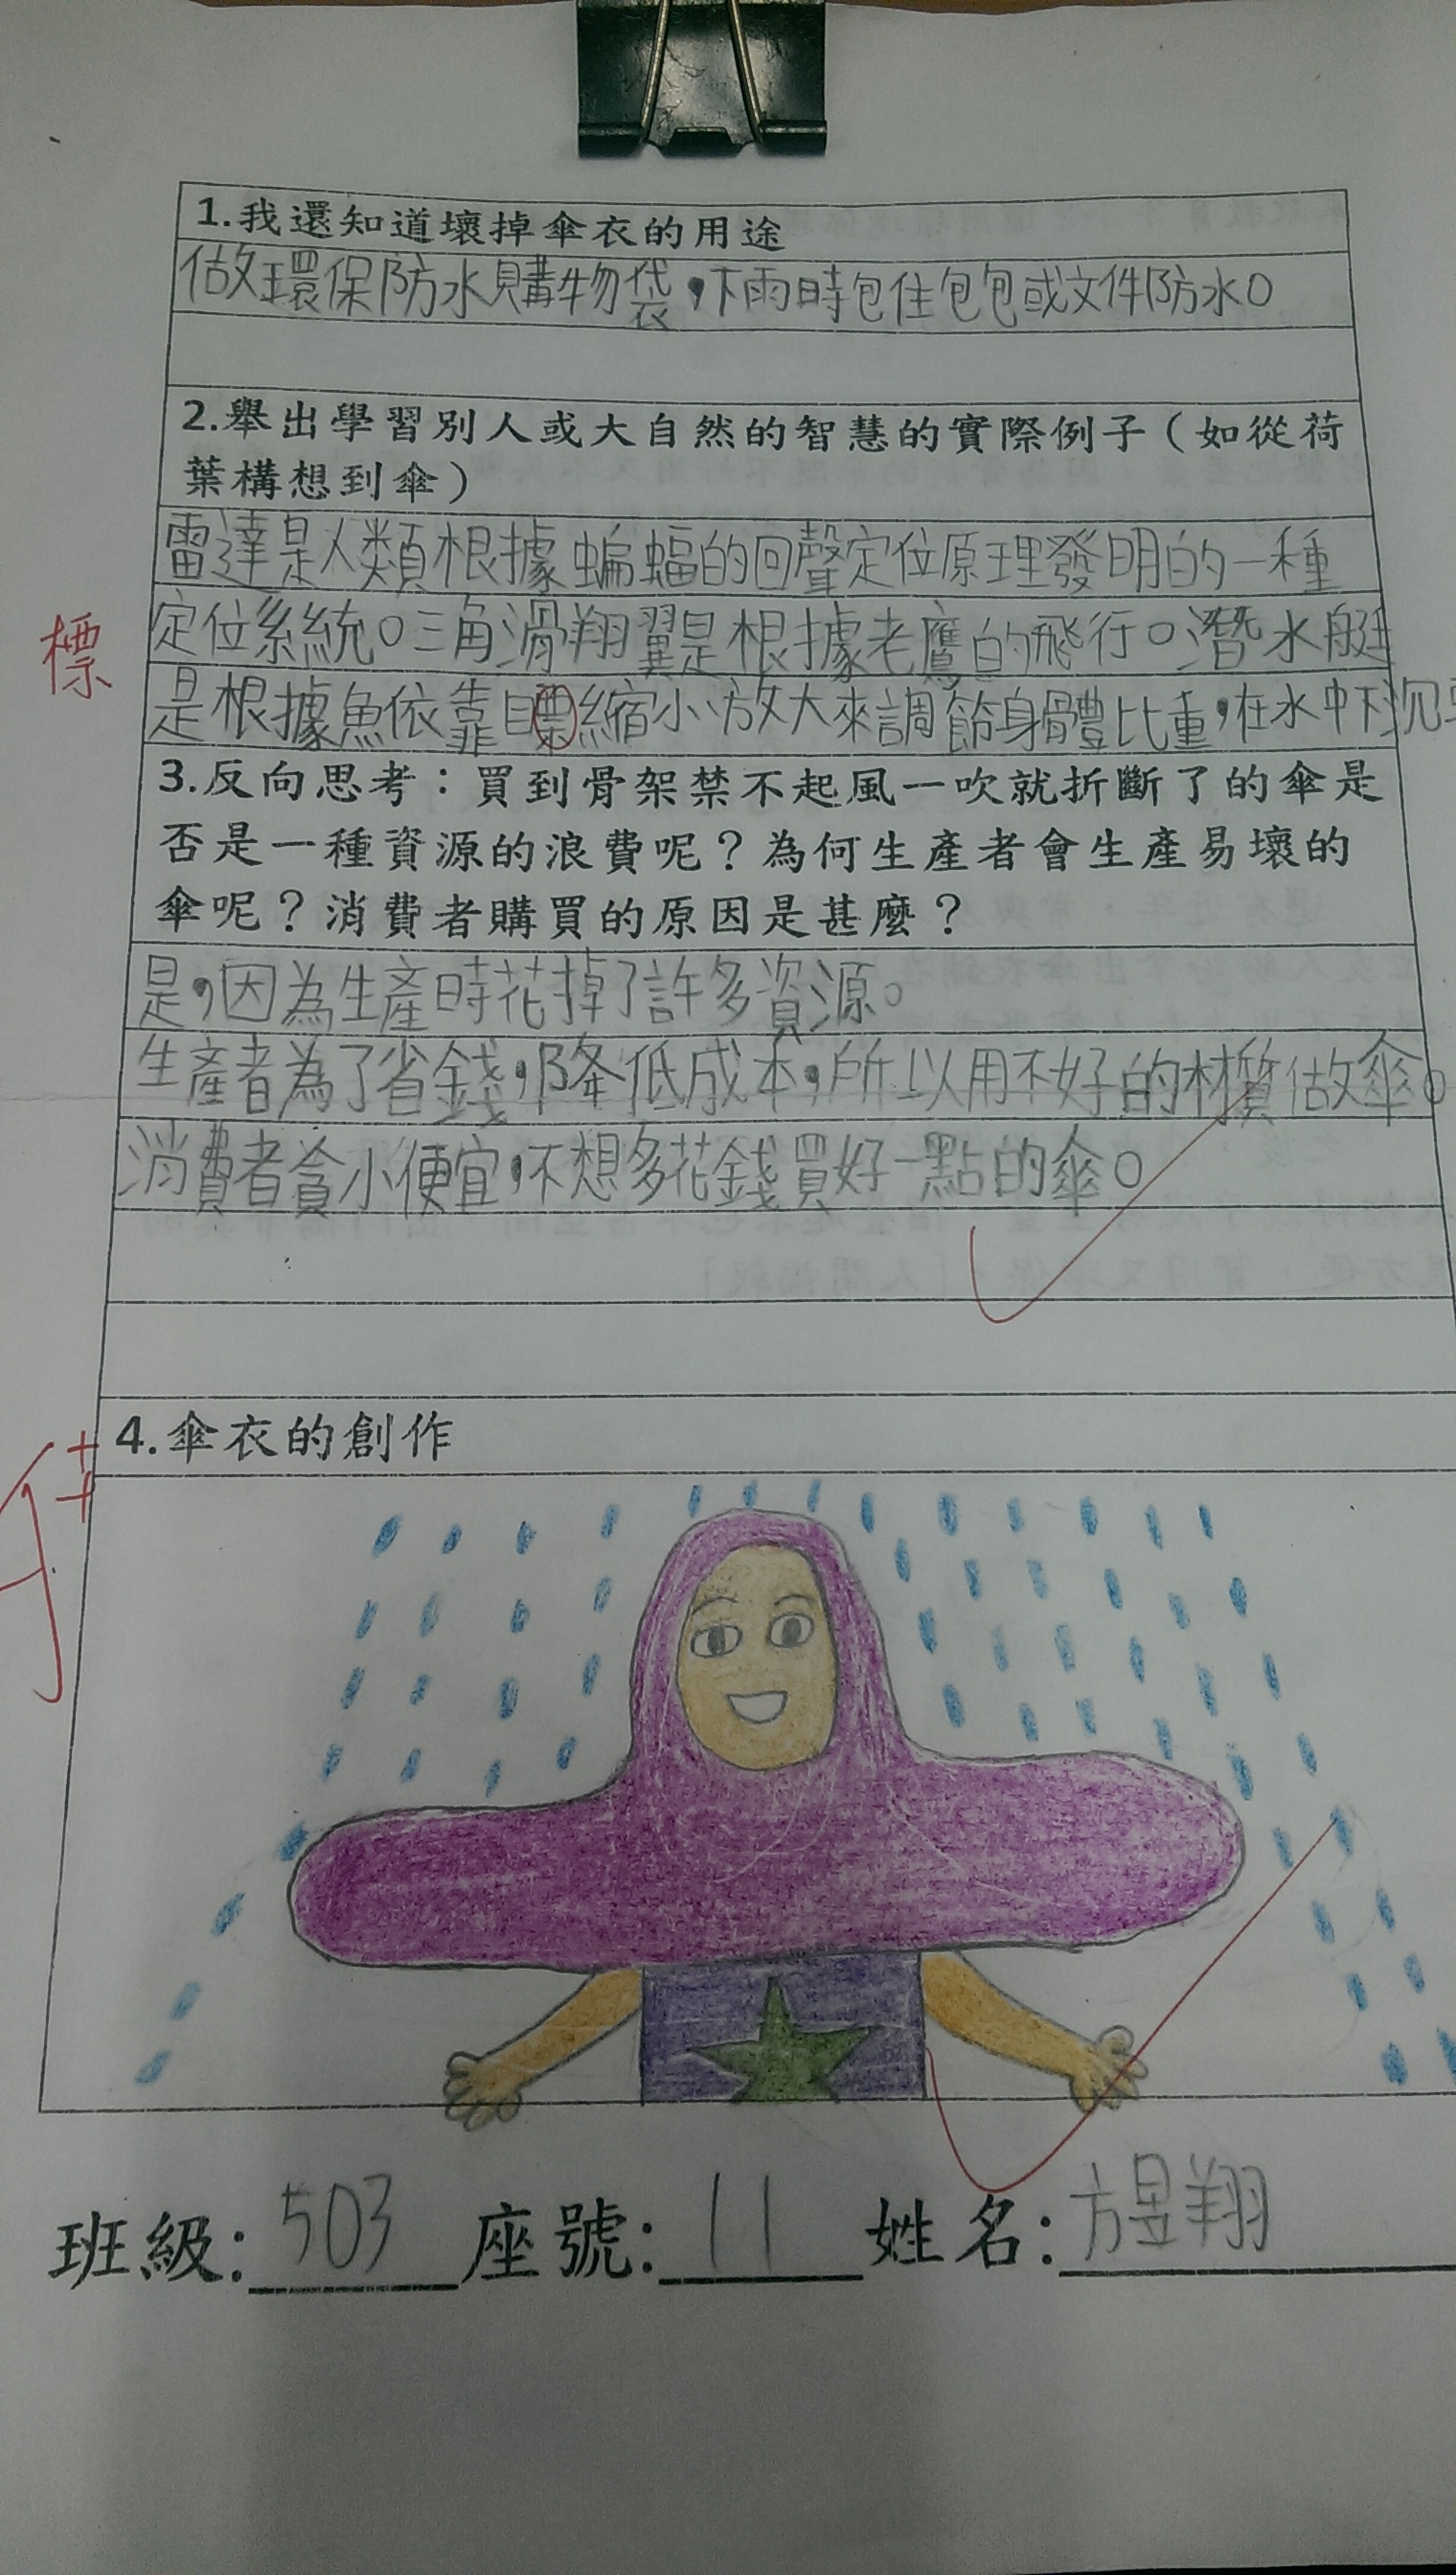 1.我還知道壞掉傘衣的用途
做環保防水購物袋,下雨時包住包包或文件防水。
2.舉出學習別人或大自然的智慧的實際例子(如從荷
葉構想到傘)
雷達是人類根據蝙蝠的回聲定位原理發明的一種
定位系統。三角滑翔翼是根據老鷹的飛行。潛水艇
標
是根據魚依靠目標縮小、放大來調節身體比重,在水中下沉
3.反向思考:買到骨架禁不起風一吹就折斷了的傘是
否是一種資源的浪費呢?為何生產者會生產易壞的
傘呢?消費者購買的原因是甚麼?
是,因為生產時花掉了許多資源。
生產者為了省錢,降低成本,所以用不好的材質做傘。
消費者貪小便宜,不想多花錢買好一點的傘。
4.傘衣的創作
班級:503座號:11姓名:方昱翔